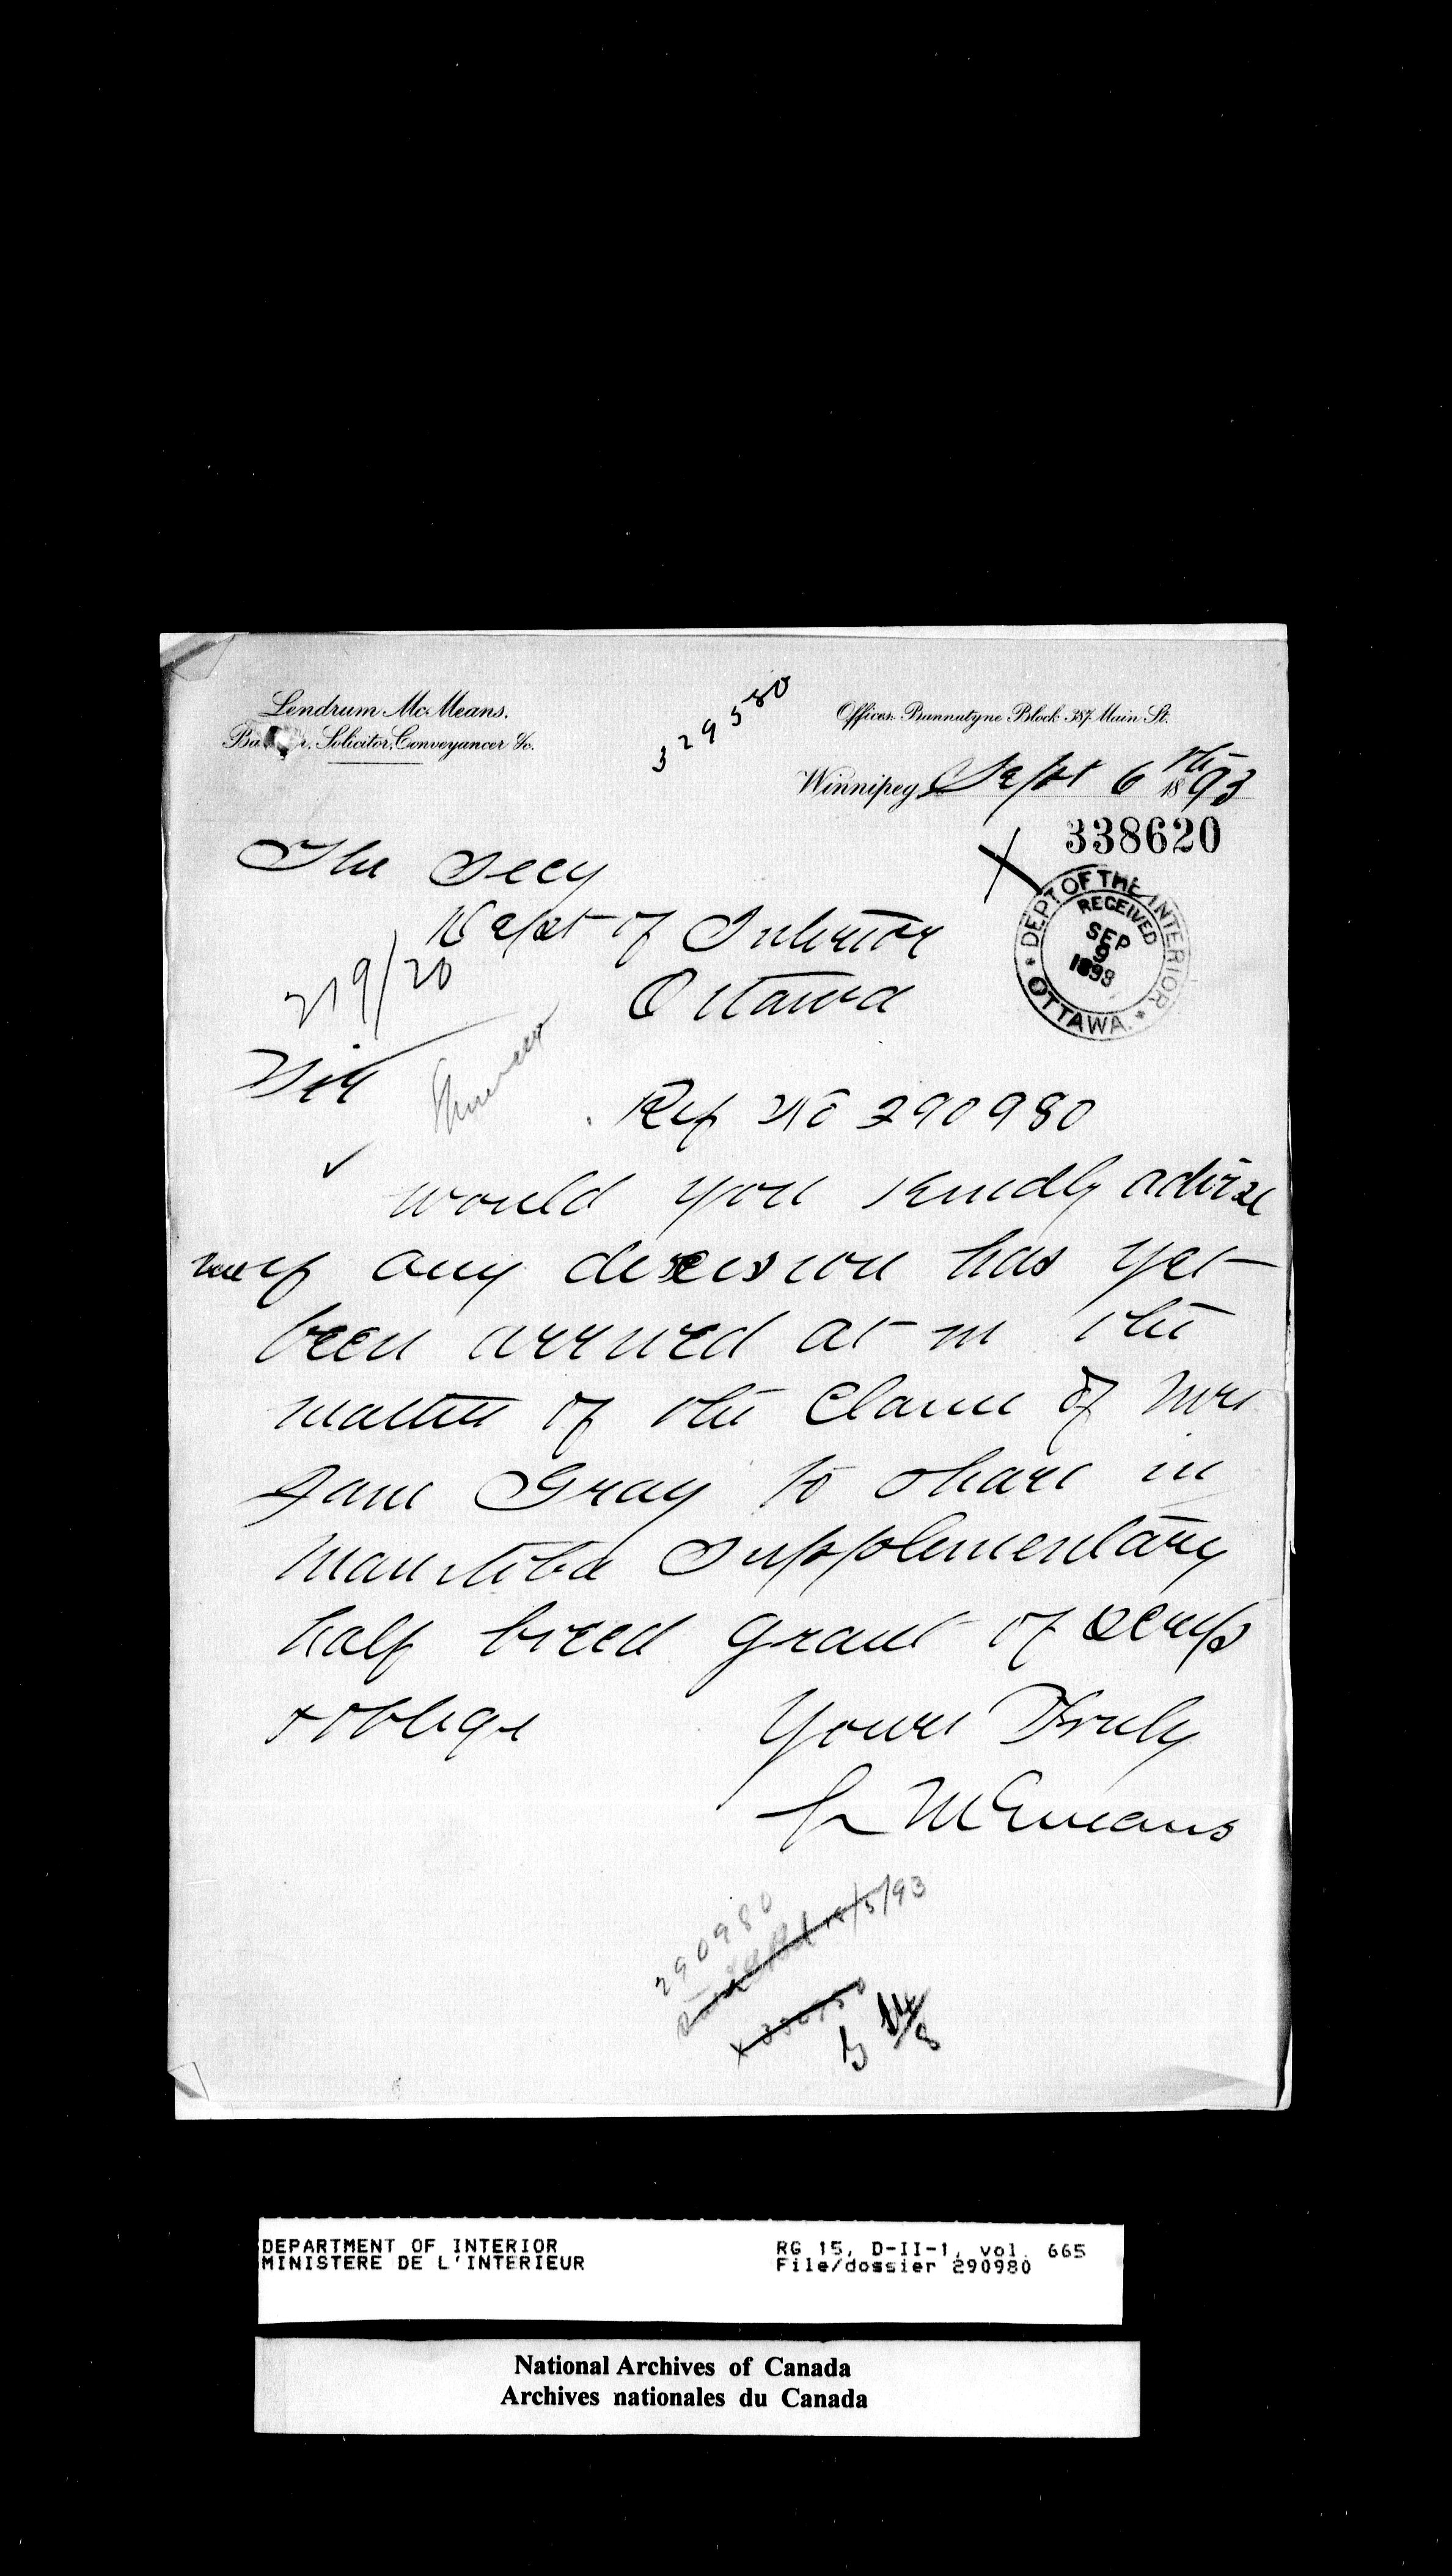 Lendrum McMeans.
Ba r, Solicitor, Conveyancer &c.
329580
Offices. Bannatyne Block 387 Main St.
Winnipeg Sept 6th 1893
338620
DEPT OF THE INTERIOR
RECEIVED
SEP
9
1893
OTTAWA.
The Secy
Dept of Interior
Ottawa
219/20
Sir
Ref No 290980
would you kindly advise
me if any decision has yet
been arrived at in the
matter of the Claim of Mrs
Jane Gray to share in
Manitoba Supplementary
half breed grant of scrip
& oblige
Yours Truly
L McMeans
290980
/5/93
DEPARTMENT OF INTERIOR
MINISTERE DE L'INTERIEUR
RG 15, D-II-1, vol. 665
File/dossier 290980
National Archives of Canada
Archives nationales du Canada